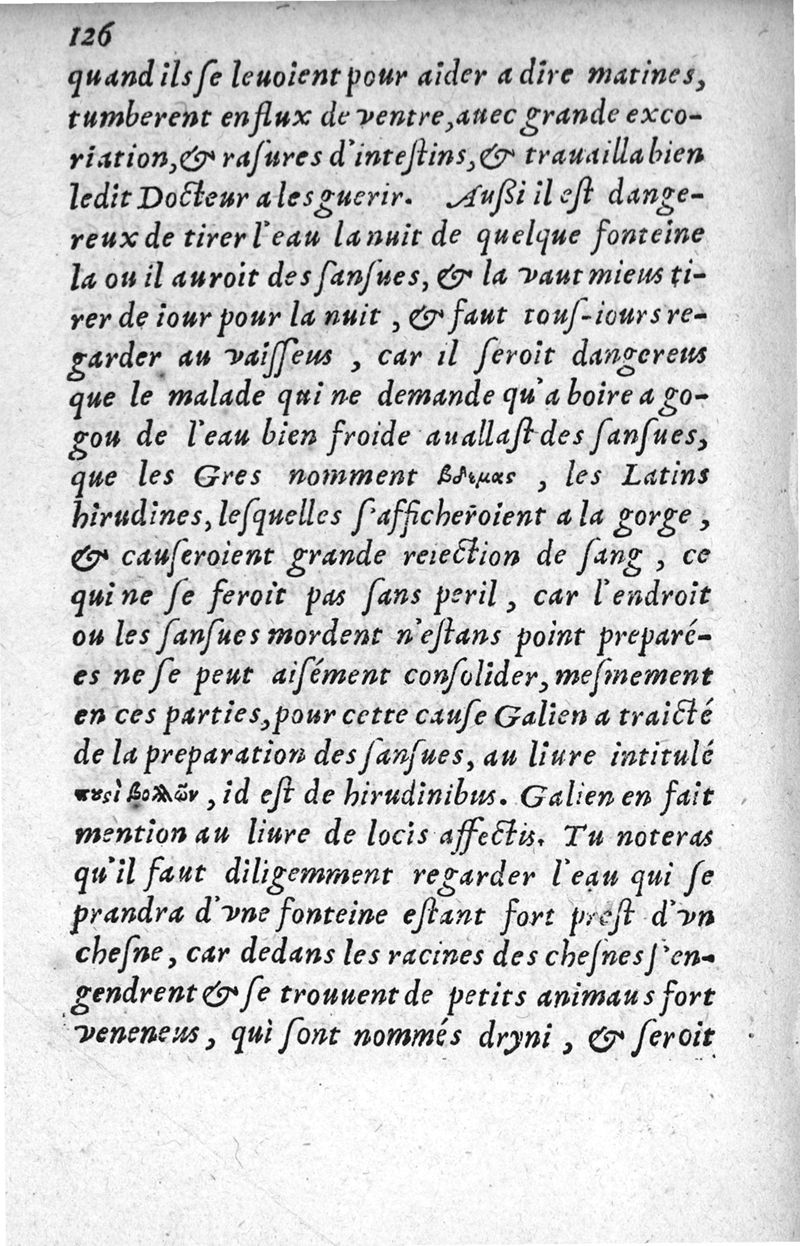 126
quand ils ſe leuoient pour aider a dire matines,
tumberent en flux de ventre, auec grande exco-
riation, & raſures d'inteſtins, & trauailla bien
ledit Docteur a les guerir. Außi il eſt dange-
reux de tirer l'eau la nuit de quelque fonteine
la ou il auroit des ſanſues, & la vaut mieus ti-
rer de iour pour la nuit , & faut touſ-iours re-
garder au vaiſſeus , car il ſeroit dangereus
que le malade qui ne demande qu'a boire a go-
gou de l'eau bien froide auallaſt des ſanſues,
que les Gres nomment , les Latins
hirudines, leſquelles ſ'afficheroient a la gorge ,
& cauſeroient grande reiection de ſang , ce
qui ne ſe feroit pas ſans peril , car l'endroit
ou les ſanſues mordent n'eſtans point preparé-
es ne ſe peut aiſément conſolider, meſmement
en ces parties, pour cette cauſe Galien a traicté
de la preparation des ſanſues, au liure intitulé
, id eſt de hirudinibus. Galien en fait
mention au liure de locis affectis. Tu noteras
qu'il faut diligemment regarder l'eau qui ſe
prandra d'vne fonteine eſtant fort preſt d'vn
cheſne, car dedans les racines des cheſnes ſ'en-
gendrent & ſe trouuent de petits animaus fort
veneneus, qui ſont nommés dryni , & ſeroit